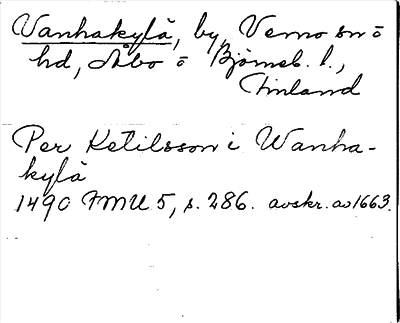 Vanhakylä, by, Vemo sn ö
hd, Åbo ö Björneb. l.,
Finland
Per Ketilsson i Wanha-
kylä
1490 FMU 5, s. 286. avskr. av 1663.